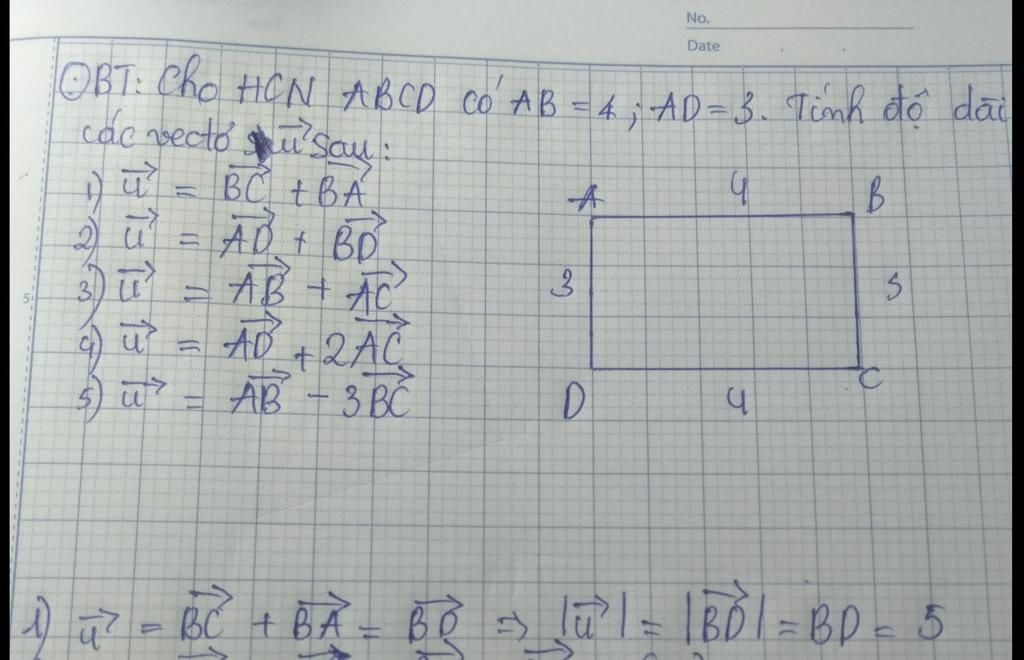 No.
Date
BT: Cho HCN ABCD có AB = 4; AD = 3. Tính độ dài
các vectơ u⃗ sau:
1) u⃗ = BC⃗ + BA⃗
2) u⃗ = AD⃗ + BD⃗
3) u⃗ = AB⃗ + AC⃗
4) u⃗ = AD⃗ + 2AC⃗
5) u⃗ = AB⃗ - 3BC⃗
A 4 B
3
D 4 C
5
1) u⃗ = BC⃗ + BA⃗ = BD⃗ => |u⃗| = |BD⃗| = BD = 5